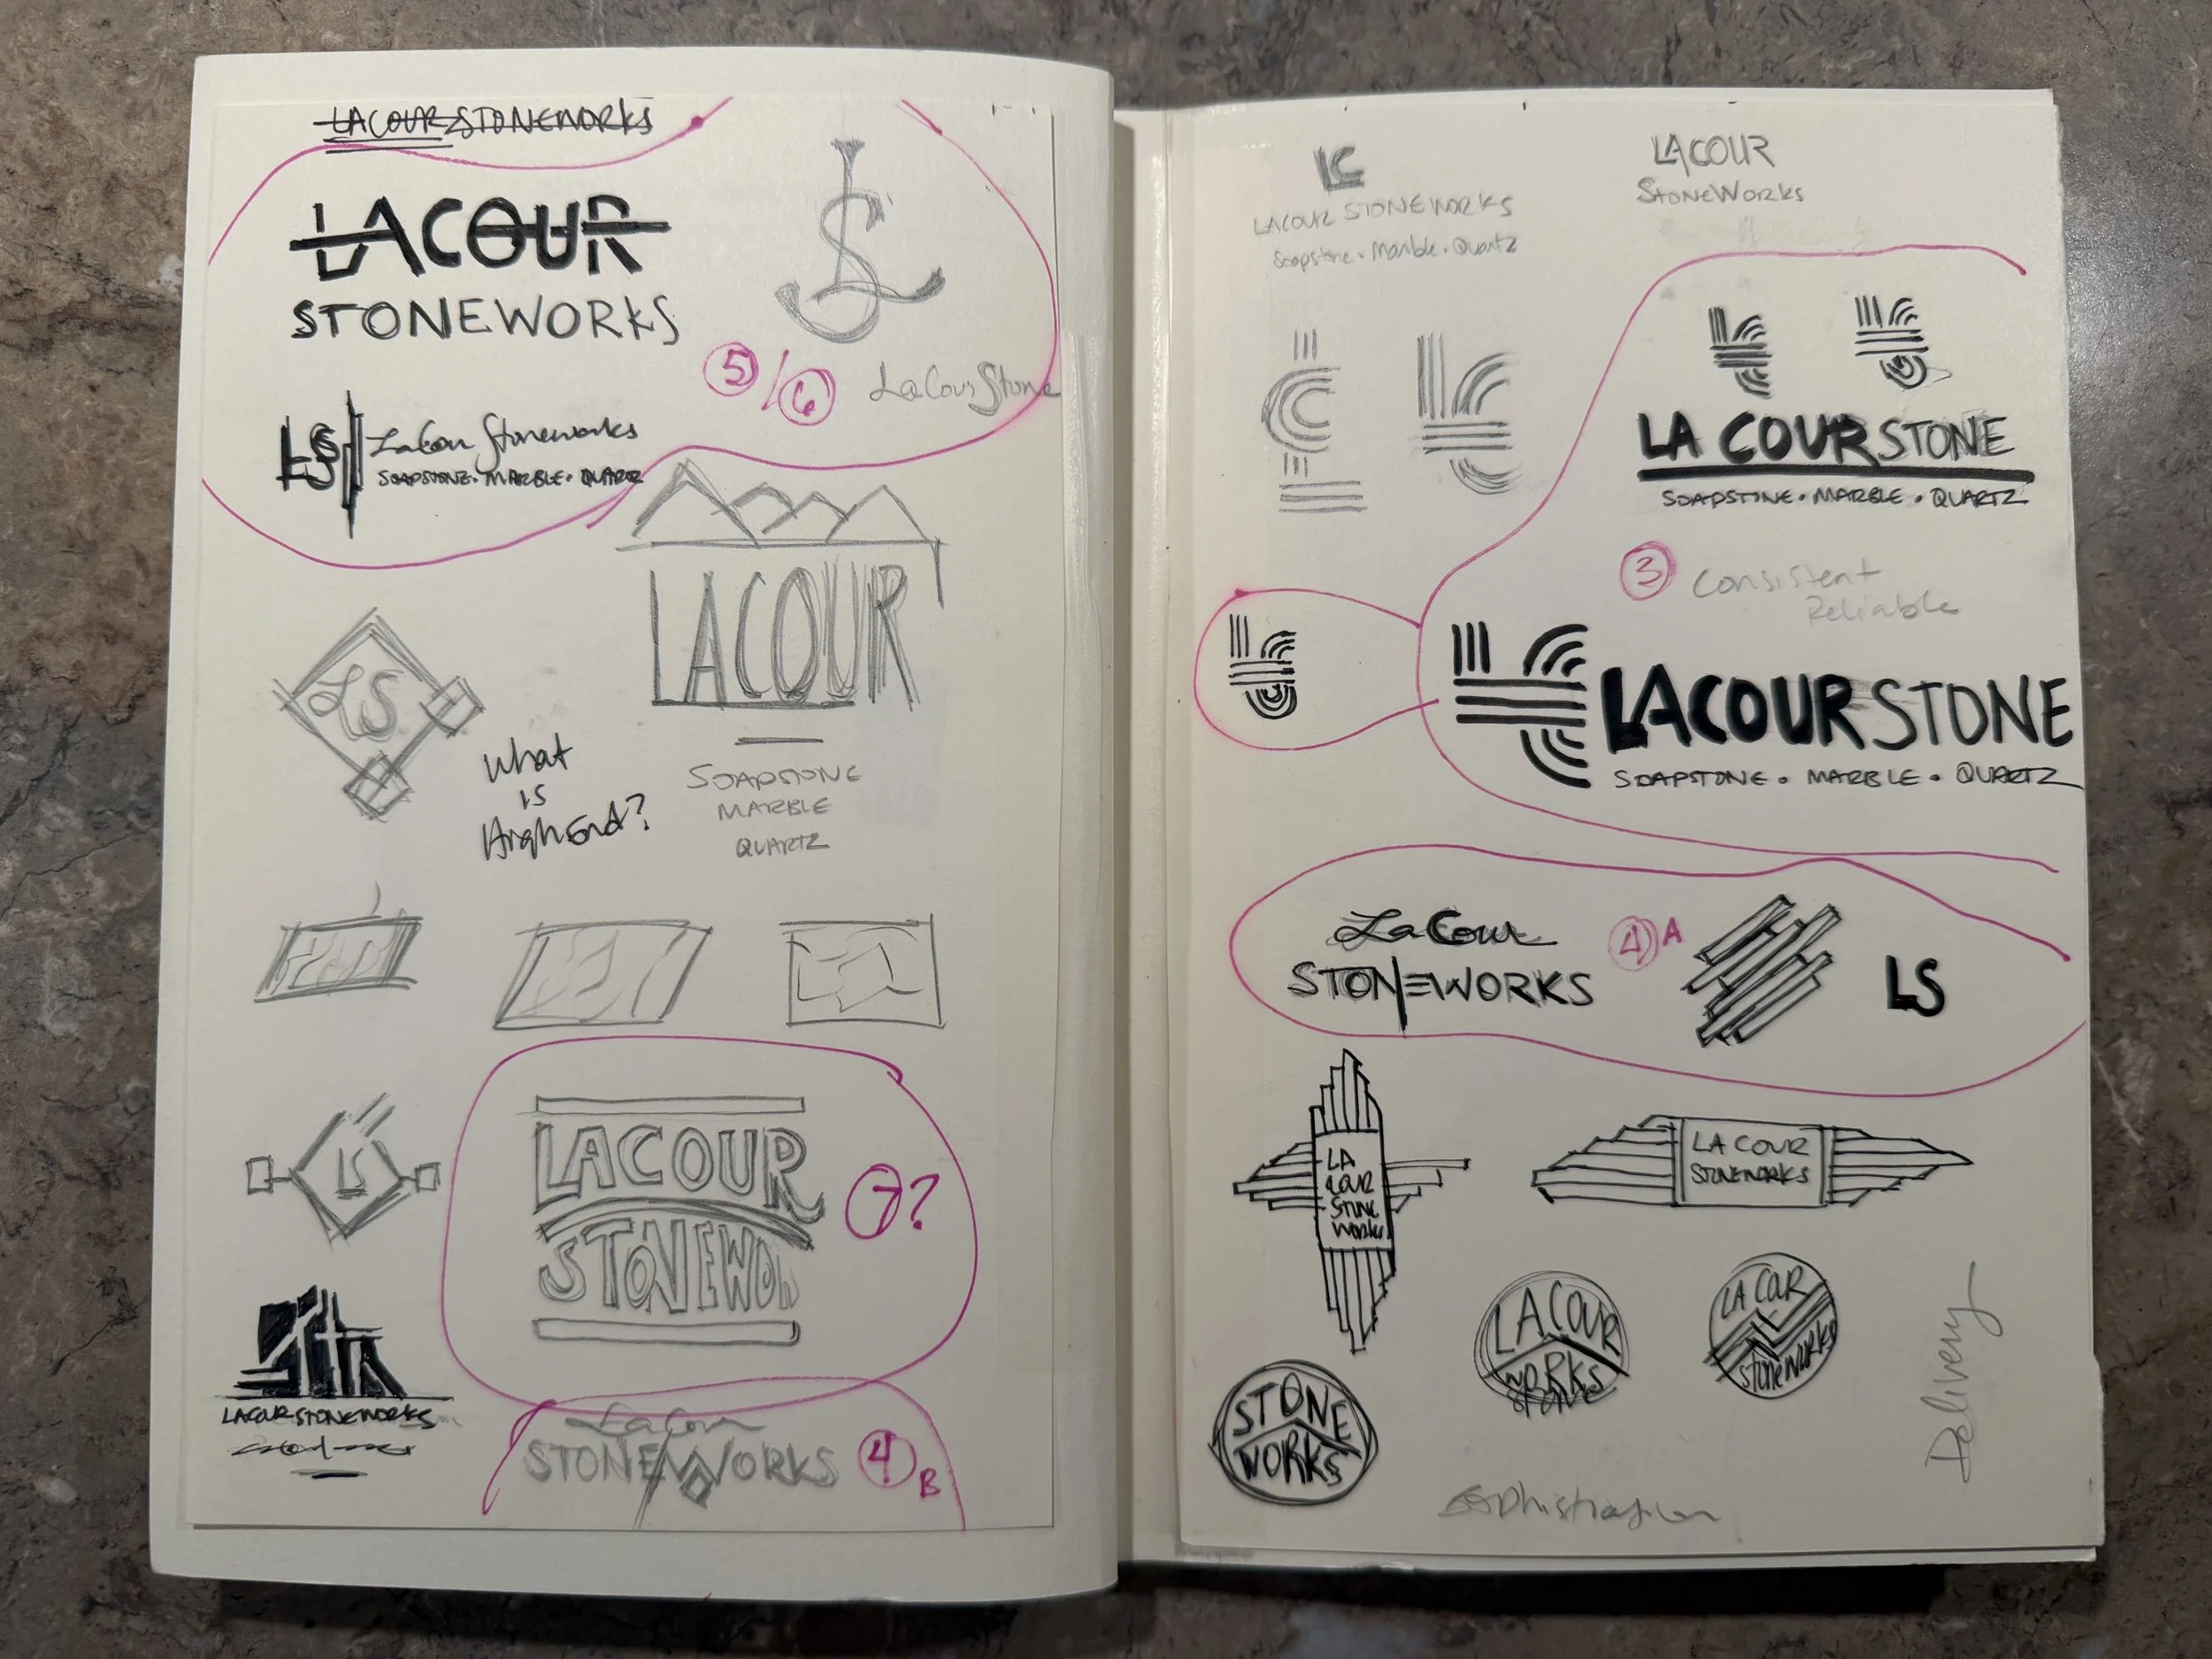 LACOUR STONEWORKS
LACOUR
STONEWORKS
SL
5/6
LaCour Stone
LS
LaCour Stoneworks
SOAPSTONE · MARBLE · QUARTZ
LACOUR
LS
What
is
High End?
SOAPSTONE
MARBLE
QUARTZ
LS
LACOUR
STONEWO
7?
LACOUR STONEWORKS
LaCour
STONEWORKS
4B
LC
LACOUR STONEWORKS
Soapstone · Marble · Quartz
LACOUR
STONEWORKS
LA COUR STONE
SOAPSTONE · MARBLE · QUARTZ
3
Consistent
Reliable
LACOURSTONE
SOAPSTONE · MARBLE · QUARTZ
LaCour
STONEWORKS
4A
LS
LA
COUR
STONE
WORKS
LA COUR
STONEWORKS
LACOUR
WORKS
STONE
LA COUR
STONEWORKS
STONE
WORKS
Delivery